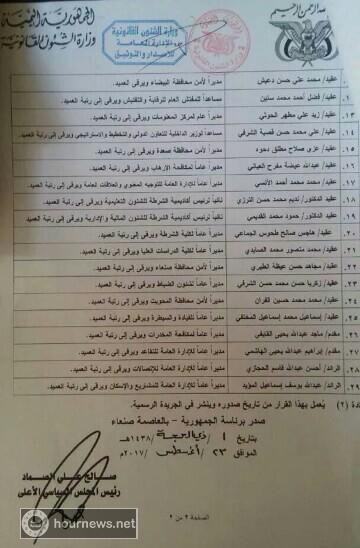 الجمهورية اليمنية
وزارة الشئون القانونية
وزارة الشئون القانونية
عقيد/ محمد علي حسن دعيش مديراً لأمن محافظة البيضاء ويرقى إلى رتبة العميد.
عقيد/ فضل أحمد محمد مساعداً للمفتش العام للرقابة والتفتيش ويرقى إلى رتبة العميد.
١٣. عقيد/ زيد علي مطهر الحوثي مديراً عام لمركز المعلومات ويرقى إلى رتبة العميد.
١٤. عقيد/ علي محمد حسن الشرفي مساعداً لوزير الداخلية للتعاون الدولي والتخطيط والاستراتيجي ويرقى إلى رتبة العميد.
١٥. عقيد/ عزي صلاح مطلق دحوه مديراً لأمن محافظة صعدة ويرقى إلى رتبة العميد.
١٦. عقيد/ عبدالله عيضة مفرح مديراً عاماً لمكافحة الإرهاب ويرقى إلى رتبة العميد.
١٧. عقيد/ محمد محمد أحمد الآنسي مديراً عاماً للإدارة العامة للتوجيه المعنوي والعلاقات العامة ويرقى إلى رتبة العميد.
١٨. عقيد/ الدكتور/ نديم محمد حسن الترزي نائباً لرئيس أكاديمية الشرطة للشئون التعليمية ويرقى إلى رتبة العميد.
١٩. عقيد/ الدكتور/ حمود محمد القديمي نائباً لرئيس أكاديمية الشرطة للشئون المالية والإدارية ويرقى إلى رتبة العميد.
٢٠. عقيد/ هاجس صالح الجماعي مديراً عاماً لكلية الشرطة ويرقى إلى رتبة العميد.
٢١. عقيد/ محمد منصور محمد مديراً عاماً لكلية الدراسات العليا ويرقى إلى رتبة العميد.
٢٢. عقيد/ مجاهد حسن مديراً لأمن محافظة صنعاء ويرقى إلى رتبة العميد.
٢٣. عقيد/ زكريا حسن محمد حسن الشرفي مديراً عاماً لشئون الضباط ويرقى إلى رتبة العميد.
٢٤. عقيد/ محمد محمد حسين مديراً لأمن محافظة المحويت ويرقى إلى رتبة العميد.
٢٥. عقيد/ إسماعيل محمد إسماعيل مديراً عاماً للقيادة والسيطرة ويرقى إلى رتبة العميد.
٢٦. مقدم/ ماجد عبدالله يحيى القايفي مديراً عاماً لمكافحة المخدرات ويرقى إلى رتبة العميد.
٢٧. مقدم/ إبراهيم عبدالله يحيى الهاشمي مديراً عاماً للإدارة العامة للتقاعد ويرقى إلى رتبة العميد.
٢٨. الرائد/ أحسن عبدالله قاسم الحجازي مديراً عاماً للإدارة العامة للإتصالات ويرقى إلى رتبة العميد.
٢٩. الرائد/ عبدالله يوسف إسماعيل المؤيد مديراً عاماً للإدارة العامة للمشاريع والإسكان ويرقى إلى رتبة العميد.
(٢) يُعمل بهذا القرار من تاريخ صدوره وينشر في الجريدة الرسمية.
صدر برئاسة الجمهورية - بالعاصمة صنعاء
بتاريخ ١ / ذي الحجة / ١٤٣٨هـ
الموافق ٢٣ / أغسطس / ٢٠١٧م
صالح علي الصماد
رئيس المجلس السياسي الأعلى
الصفحة ٢ من ٢
hournews.net